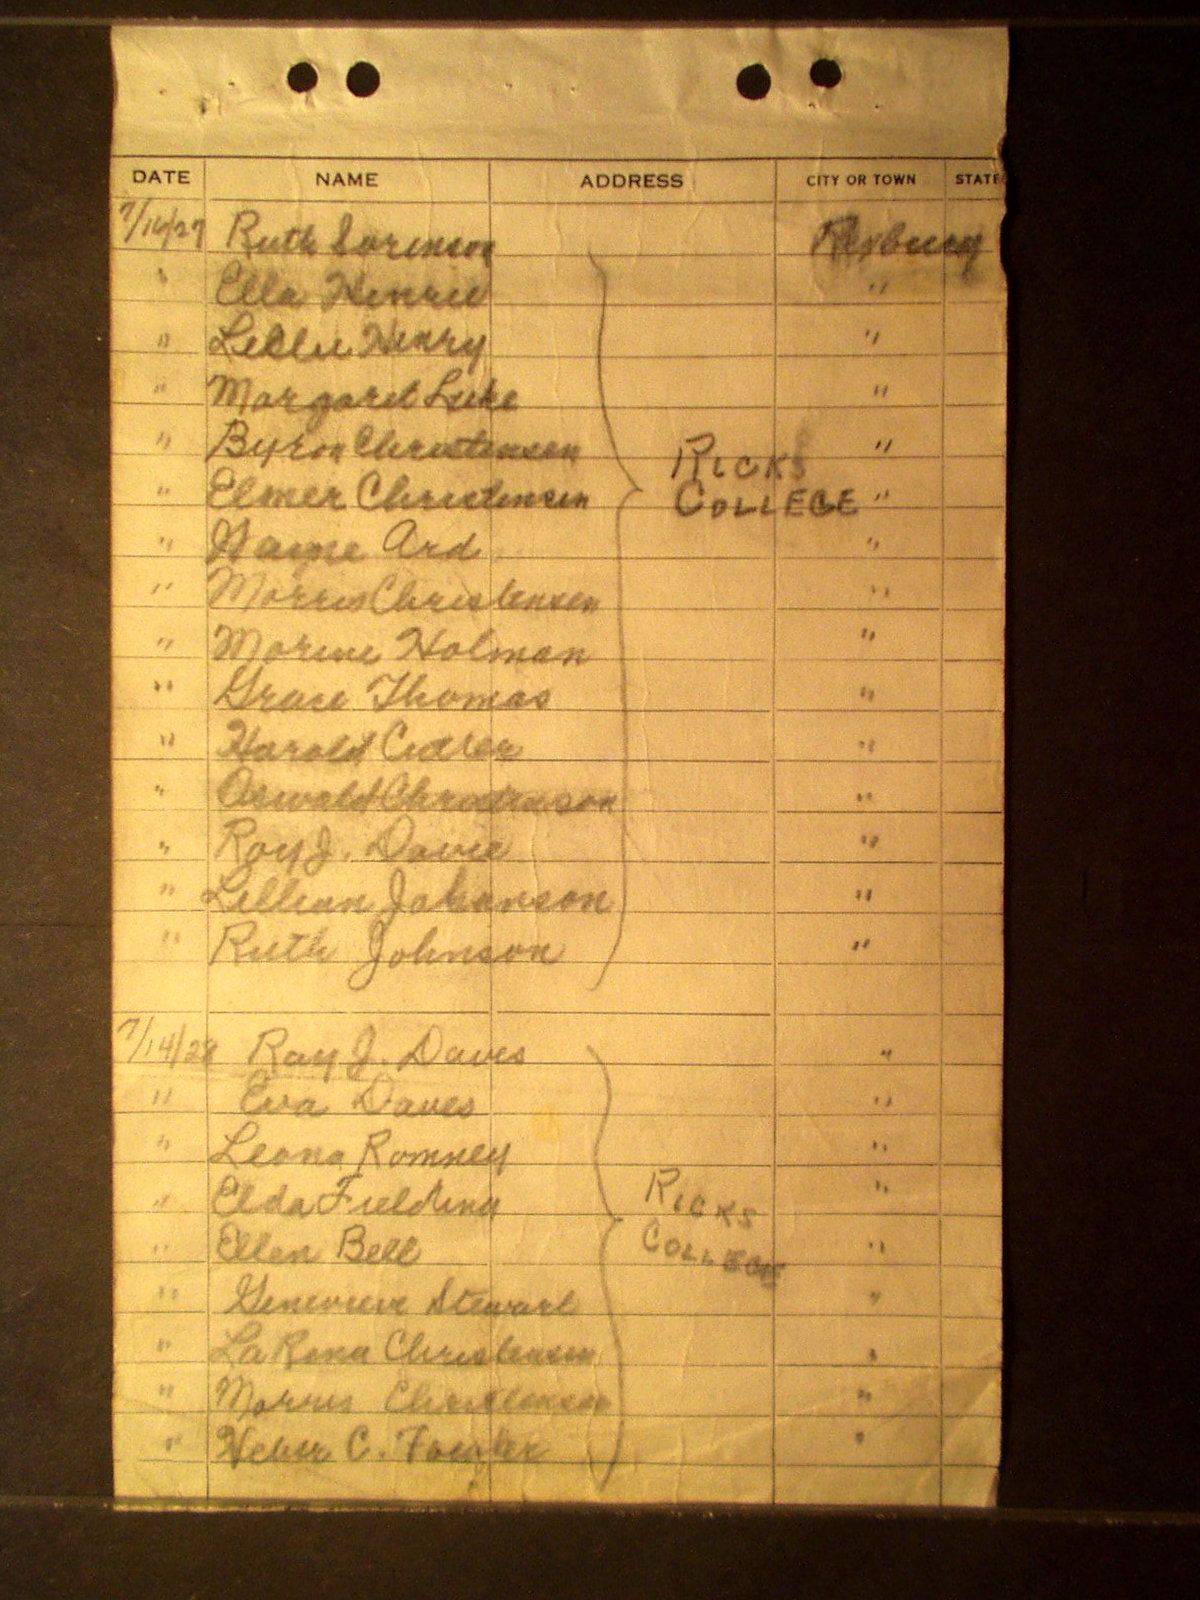 DATE NAME ADDRESS CITY OR TOWN STATE
7/16/27 Ruth Sorenson Rexburg
" Ella Henrie "
" Henry "
" Margaret Luke "
" Byron Christensen "
RICKS
" Elmer Christensen COLLEGE "
" Wayne Ard "
" Morris Christensen "
" Holman "
" Grace Thomas "
" Harold "
" Oswald Christenson "
" Roy J. Davie "
" Lillian Johanson "
" Ruth Johnson "
7/14/28 Ray J. Daves "
" Eva Daves "
" Leona Romney "
" Elda Fielding RICKS "
" Ellen Bell COLLEGE "
" Genevieve Stewart "
" LaRena Christensen "
" Morris Christensen "
" Heber C. Fowler "